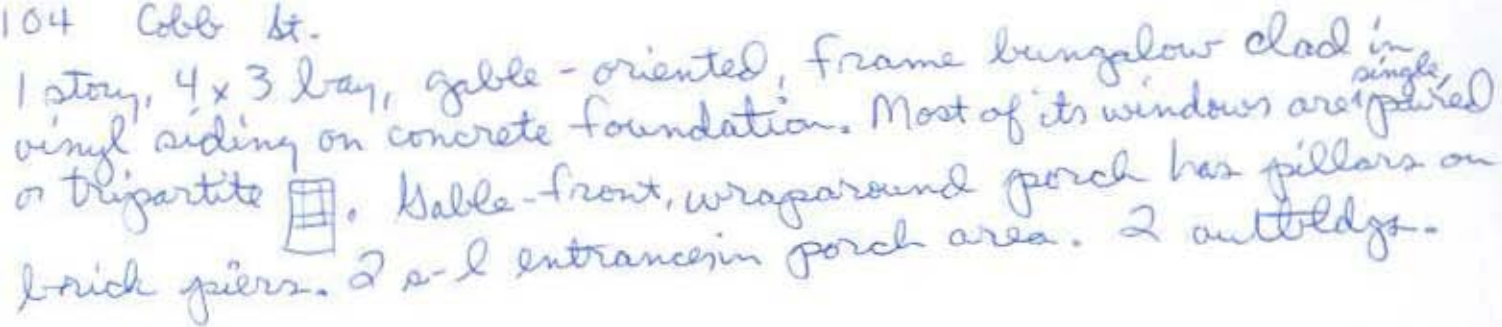 104 Cobb St.
1 story, 4 x 3 bay, gable-oriented, frame bungalow clad in
vinyl siding on concrete foundation. Most of its windows are single, paired
or tripartite . Gable-front, wraparound porch has pillars on
brick piers. 2 s-l entrances in porch area. 2 outbldgs.